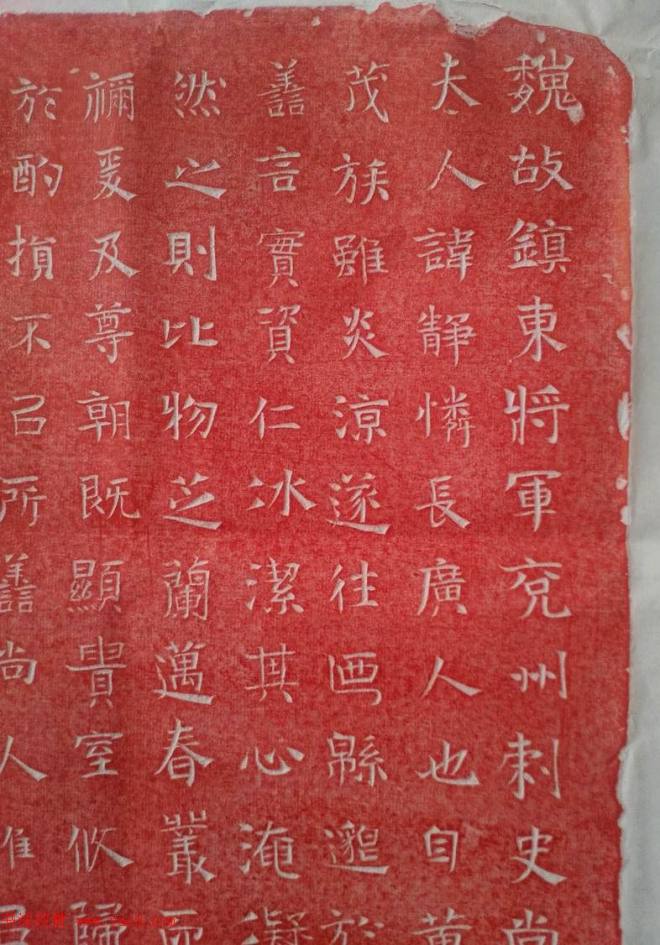 魏故鎮東將軍兗州刺史尚
夫人諱靜憐長廣人也自黃
茂族雖炎涼遂往
善言實資仁冰潔其心淹凝
然之則比物芝蘭邁春叢而
禰爰及尊朝既顯貴室攸歸
於酌損不以所善尚人唯以